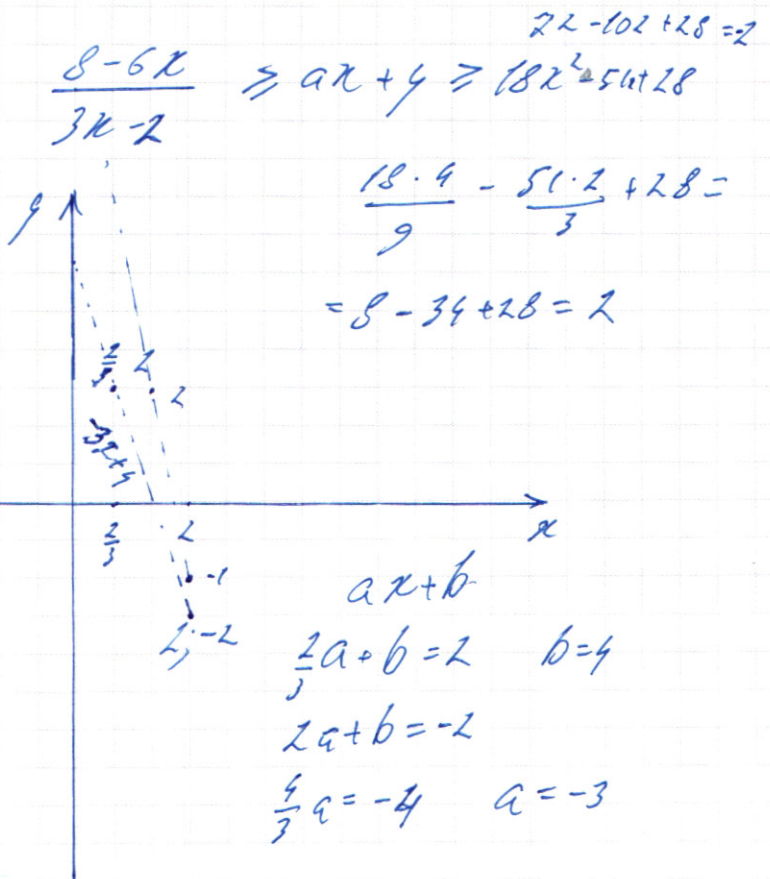 72 - 102 + 28 = -2
8 - 6x / 3x - 2 ≥ ax + 4 ≥ 18x² - 51x + 28
y
18 · 4 / 9 - 51 · 2 / 3 + 28 =
= 8 - 34 + 28 = 2
2/3 2
2
-3x+4
2/3 2 x
-1
2; -2
ax + b
2/3 a + b = 2 b = 4
2a + b = -2
4/3 a = -4 a = -3